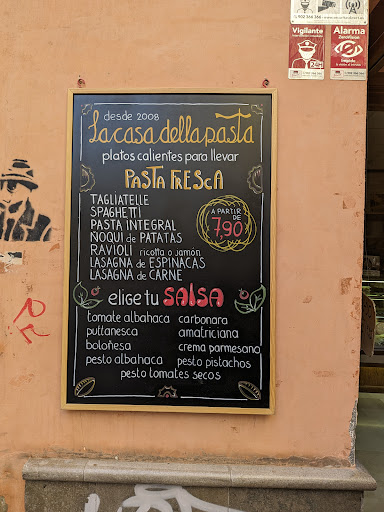 902 366 366
Vigilante
24H
Alarma
desde 2008
La casa della pasta
platos calientes para llevar
PASTA FRESCA
TAGLIATELLE
SPAGHETTI
PASTA INTEGRAL
ÑOQUI de PATATAS
RAVIOLI ricotta o jamón
LASAGNA de ESPINACAS
LASAGNA de CARNE
A PARTIR
DE
7,90
elige tu SALSA
tomate albahaca carbonara
puttanesca amatriciana
boloñesa crema parmesano
pesto albahaca pesto pistachos
pesto tomates secos